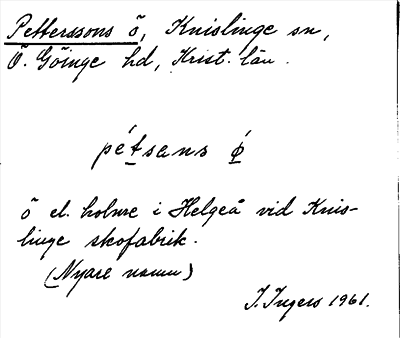 Petterssons ö, Knislinge sn,
Ö. Göinge hd, Krist. län.
pétsans ǿ
ö el. holme i Helgeå vid Knis-
linge skofabrik.
(Nyare namn)
I. Ingers 1961.